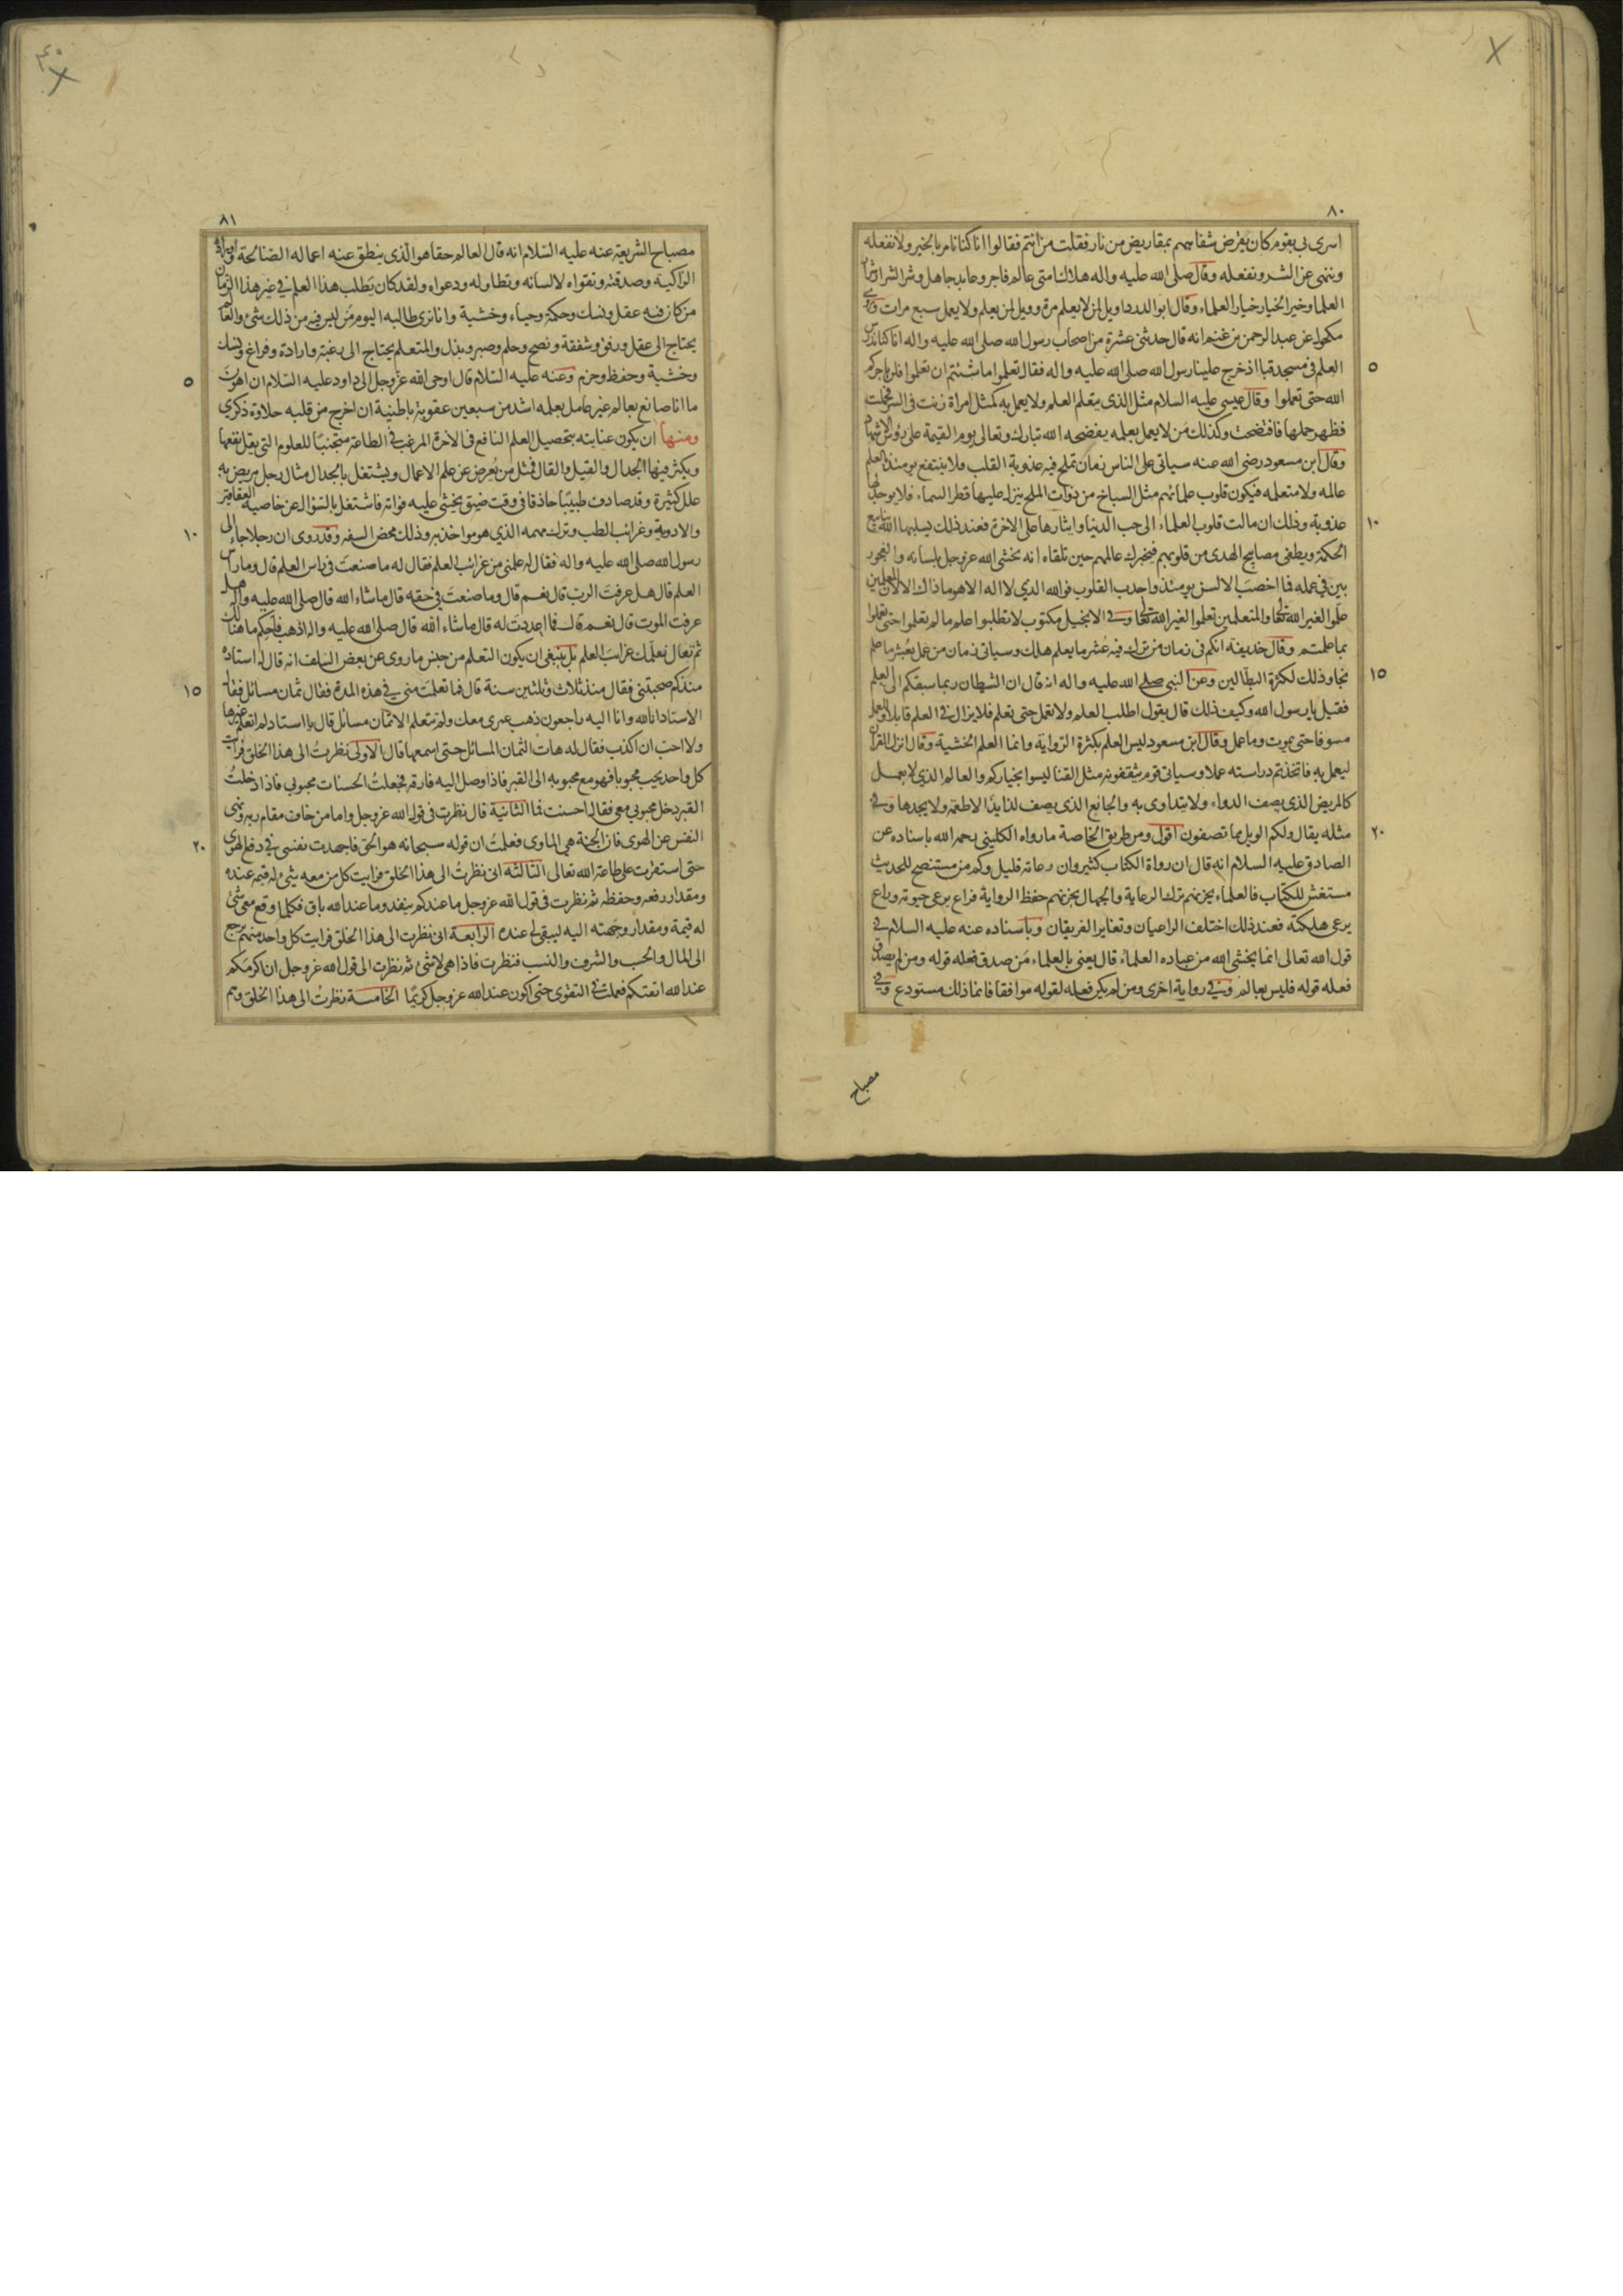 ٨٠
اسرى بى بقوم كان يقرض شفاههم بمقاريض من نار فقلت من انتم فقالوا انا كنا نامر بالخير ولا نفعله
وننهى عن الشر ونفعله وقال صلى الله عليه واله هلاك امتى عالم فاجر وعابد جاهل وشر الشرار شرار
العلما وخير الخيار خيار العلماء وقال ابو الدرداء ويل لمن لا يعلم مرة وويل لمن يعلم ولا يعمل سبع مرات وروى
مكحول عن عبد الرحمن بن غنم انه قال حدثنى عشرة من اصحاب رسول الله صلى الله عليه واله انا كنا ندرس
٥
العلم فى مسجد قبا اذ خرج علينا رسول الله صلى الله عليه واله فقال تعلموا ما شئتم ان تعلموا فلن ياجركم
الله حتى تعملوا وقال عيسى عليه السلام مثل الذى يتعلم العلم ولا يعمل به كمثل امراة زنت فى السر فحملت
فظهر حملها فافتضحت وكذلك من لا يعمل بعلمه يفضحه الله تبارك وتعالى يوم القيمة على رؤس الاشهاد
وقال ابن مسعود رضى الله عنه سياتى على الناس زمان تملح فيه عذوبة القلب فلا ينتفع يومئذ بالعلم
عالمه ولا متعلمه فيكون قلوب علمائهم مثل السباخ من ذوات الملح ينزل عليها قطر السماء فلا يوجد لها
١٠
عذوبة وذلك ان مالت قلوب العلماء الى حب الدنيا وايثارها على الاخرة فعند ذلك يسلبها الله ينابيع
الحكمة ويطفى مصابيح الهدى من قلوبهم فيخبرك عالمهم حين تلقاه انه يخشى الله عز وجل بلسانه والفجور
بين فى عمله فما اخصب الالسن يومئذ واجدب القلوب فوالله الذي لا اله الا هو ماذاك الا لان المعلمين
علموا لغير الله تعالى والمتعلمين تعلموا لغير الله تعالى وفى الانجيل مكتوب لا تطلبوا علم ما لم تعلموا حتى تعملوا
بما علمتم وقال حذيفة انكم فى زمان من ترك فيه عشر ما يعلم هلك وسياتى زمان من عمل بعشر ما علم
١٥
نجا وذلك لكثرة البطالين وعن النبي صلى الله عليه واله انه قال ان الشطان ربما سبقكم الى العلم
فقيل يا رسول الله وكيف ذلك قال يقول اطلب العلم ولا تعمل حتى تعلم فلا يزال فى العلم قايلا وللعمل
مسوفا حتى يموت وما عمل وقال ابن مسعود ليس العلم بكثرة الرواية وانما العلم الخشية وقال انزل القران
ليعمل به فاتخذتم دراسته عملا وسياتى قوم يثقفونه مثل القنا ليسوا بخياركم والعالم الذي لا يعمل
كالمريض الذى يصف الدواء ولا يتداوى به والجائع الذى يصف لذايذ الاطعمة ولا يجدها وفى
٢٠
مثله يقال ولكم الويل مما تصفون اقول ومن طريق الخاصة ما رواه الكلينى رحمه الله باسناده عن
الصادق عليه السلام انه قال ان رواة الكتاب كثير وان رعاته قليل وكم من مستنصح للحديث
مستغش للكتاب فالعلماء يحزنهم ترك الرعاية والجهال يحزنهم حفظ الرواية فراع يرعى حيوته وراع
يرعى هلكته فعند ذلك اختلف الراعيان وتغاير الفريقان وباسناده عنه عليه السلام فى
قول الله تعالى انما يخشى الله من عباده العلماء قال يعنى بالعلماء من صدق فعله قوله ومن لم يصدق
فعله قوله فليس بعالم وفى رواية اخرى ومن لم يكن فعله لقوله موافقا فانما ذلك مستودع وفى
مصباح
٨١
مصباح الشريعة عنه عليه السلام انه قال العالم حقا هو الذى ينطق عنه اعماله الصالحة واوراده
الزاكية وصدقه وتقواه لا لسانه وتطاوله ودعواه ولقد كان يطلب هذا العلم في غير هذا الزمان
من كان فيه عقل ونسك وحكمة وحياء وخشية وانا نرى طالبه اليوم من ليس فيه من ذلك شئ والعالم
يحتاج الى عقل ورفق وشفقة ونصح وحلم وصبر وبذل والمتعلم يحتاج الى رغبة وارادة وفراغ ونسك
٥
وخشية وحفظ وحزم وعنه عليه السلام قال اوحى الله عز وجل الى داود عليه السلام ان اهون
ما انا صانع بعالم غير عامل بعلمه اشد من سبعين عقوبة باطنية ان اخرج من قلبه حلاوة ذكرى
ومنها ان يكون عنايته بتحصيل العلم النافع فى الاخرة المرغب فى الطاعة متجنبا للعلوم التى يقل نفعها
ويكثر فيها الجدال والقيل والقال فمثل من يعرض عن علم الاعمال ويشتغل بالجدال مثال رجل مريض به
علل كثيرة وقد صادف طبيبا حاذقا فى وقت ضيق يخشى عليه فواته فاشتغل بالسؤال عن خاصية العقاقير
١٠
والادوية وغرائب الطب وترك مهمه الذي هو مواخذ به وذلك محض السفه وقد روى ان رجلا جاء الى
رسول الله صلى الله عليه واله فقال له علمنى من غرائب العلم فقال له ما صنعت فى راس العلم قال وما راس
العلم قال هل عرفت الرب قال نعم قال وما صنعت فى حقه قال ما شاء الله قال صلى الله عليه واله هل
عرفت الموت قال نعم قال فما اعددت له قال ما شاء الله قال صلى الله عليه واله اذهب فاحكم ما هنالك
ثم تعال نعلمك غرائب العلم بل ينبغى ان يكون التعلم من جنس ما روى عن بعض السلف انه قال له استاده
١٥
منذكم صحبتنى فقال منذ ثلاث وثلثين سنة قال فما تعلمت منى فى هذه المدة فقال ثمان مسائل فقال
الاستاد انا لله وانا اليه راجعون ذهب عمرى معك ولم تتعلم الا ثمان مسائل قال يا استاد لم اتعلم غيرها
ولا احب ان اكذب فقال له هات الثمان المسائل حتى اسمعها قال الاولى نظرت الى هذا الخلق فرايت
كل واحد يحب محبوبا فهو مع محبوبه الى القبر فاذا وصل اليه فارقه فجعلت الحسنات محبوبي فاذا دخلت
القبر دخل محبوبي معي فقال احسنت فما الثانية قال نظرت فى قول الله عز وجل واما من خاف مقام ربه ونهى
٢٠
النفس عن الهوى فان الجنة هي الماوى فعلمت ان قوله سبحانه هو الحق فاجهدت نفسى في دفع الهوى
حتى استقرت على طاعة الله تعالى الثالثه انى نظرت الى هذا الخلق فرايت كل من معه شئ له قيمة عنده
ومقدار رفعه وحفظه ثم نظرت فى قول الله عز وجل ما عندكم ينفد وما عند الله باق فكلما وقع معى شئ
له قيمة ومقدار وجهته اليه ليبقى لى عنده الرابعة انى نظرت الى هذا الخلق فرايت كل واحد منهم يرجع
الى المال والحسب والشرف والنسب فنظرت فاذا هى لا شئ ثم نظرت الى قول الله عز وجل ان اكرمكم
عند الله اتقيكم فعملت فى التقوى حتى اكون عند الله عز وجل كريما الخامسة نظرت الى هذا الخلق وهم